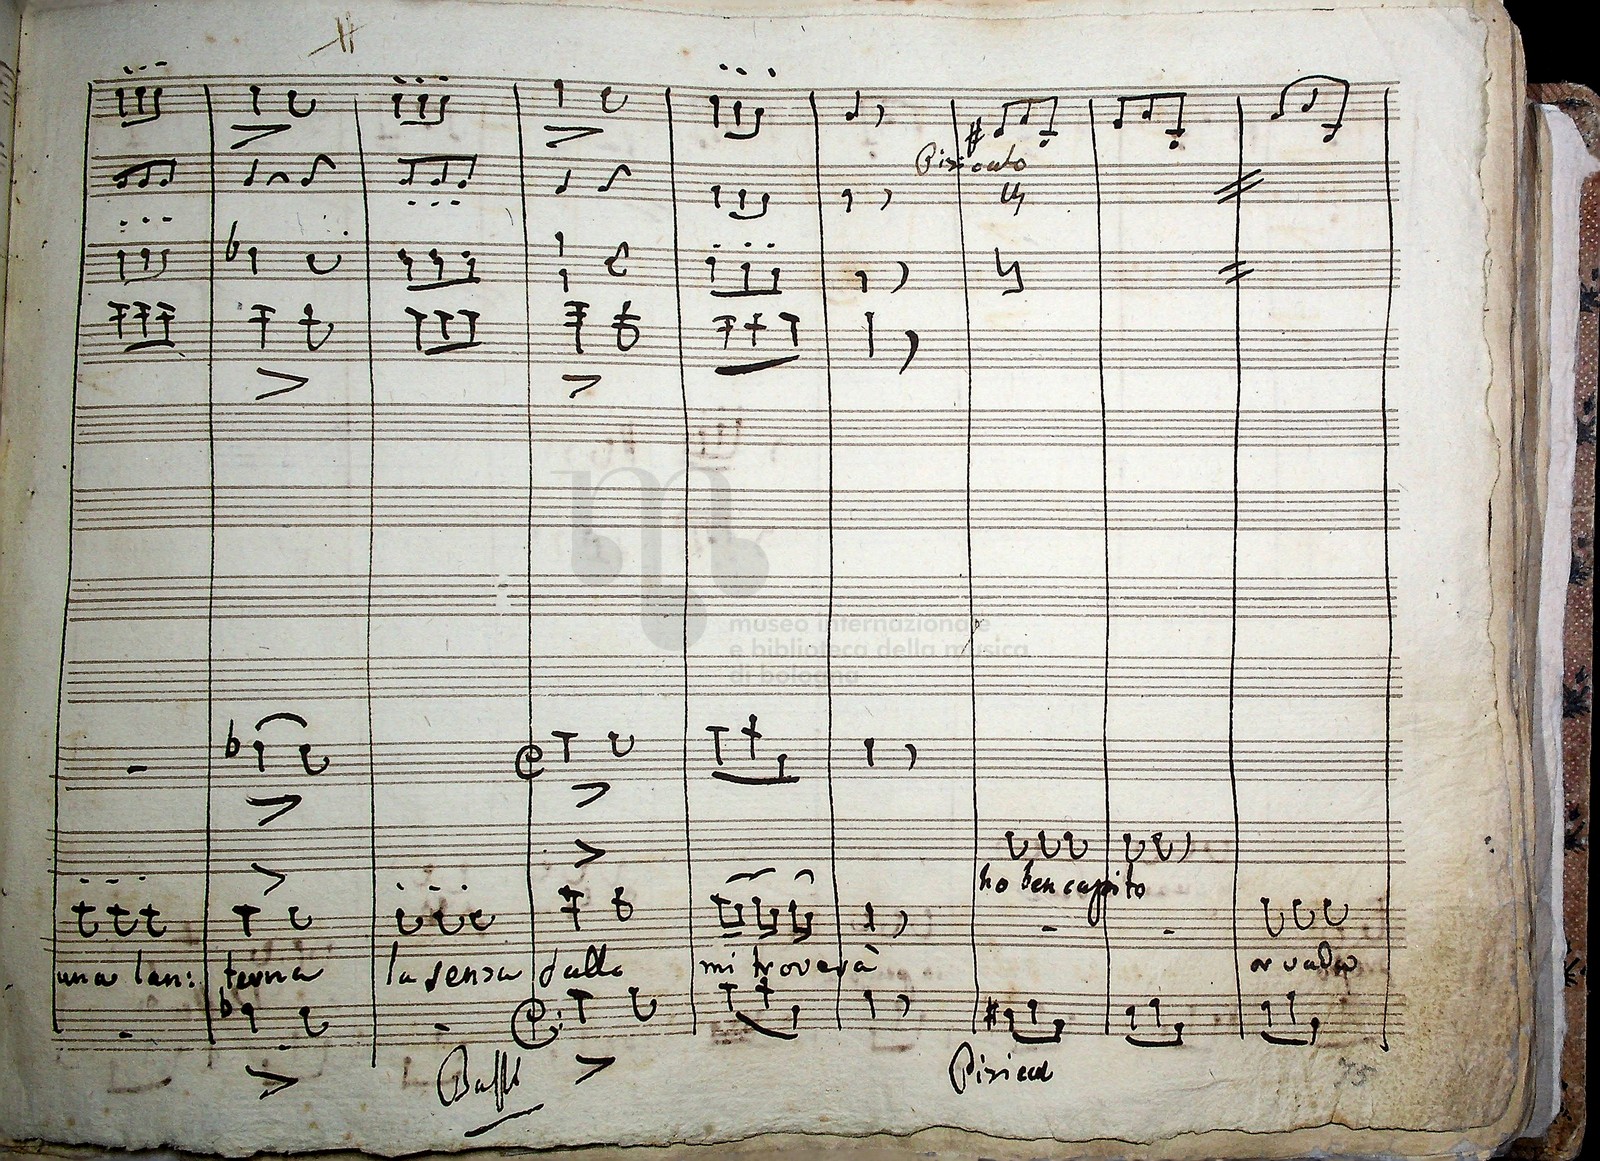 Pizicato
museo internazionale
e biblioteca della musica
di bologna
ho ben capito
una lan: terna la senza dallo mi troverà or vado
Bassi
Pizicat
75